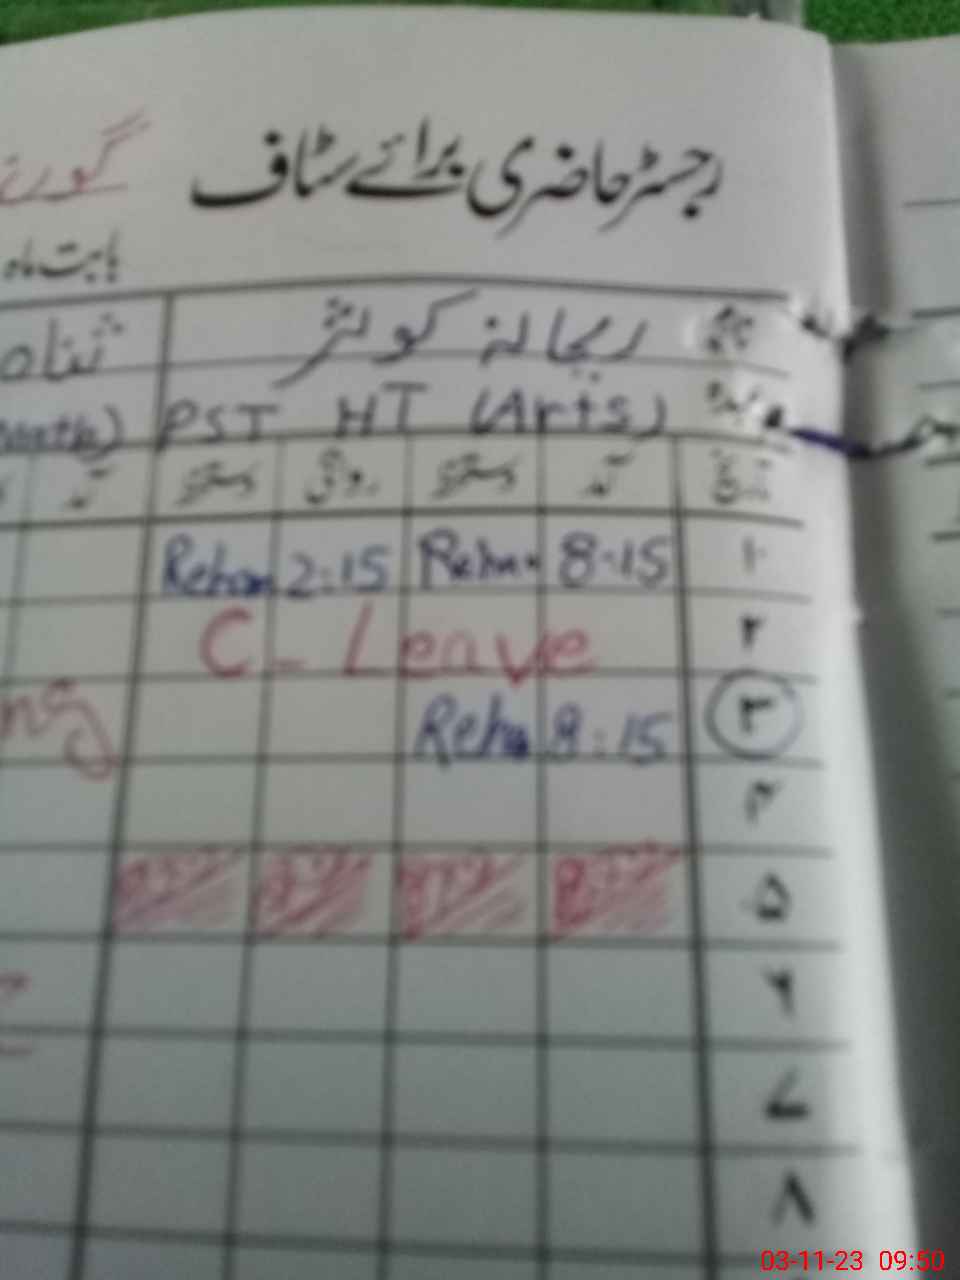 رجسٹر حاضری برائے سٹاف
بابت ماہ
نام ریحانہ کوثر
عہدہ PST HT (Arts)
تاریخ آمد دستخط روانگی دستخط آمد
۱ 8:15 Rehan 2:15 Rehan
۲ C - Leave
۳ 8:15 Reha
۴
۵
۶
۷
۸
03-11-23 09:50